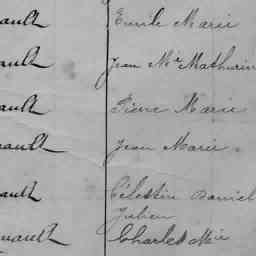 ault Emile Marie
ault Jean Mie Mathurin
ault Pierre Marie
ault Jean Marie
ault Célestin Daniel
Julien
nault Charles Mie